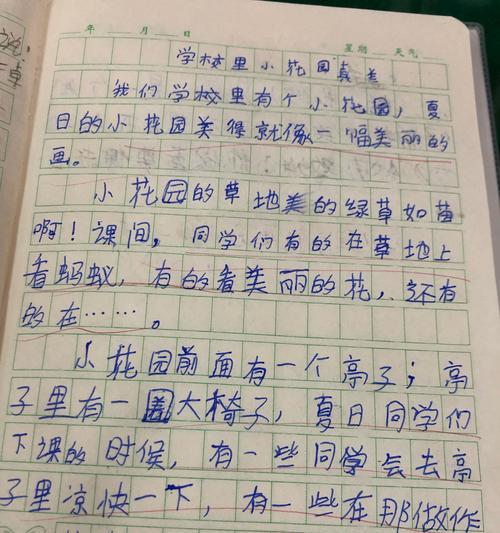 年 月 日 星期 天气
学校里小花园真美
我们学校里有个小花园，夏
日的小花园美得就像一幅美丽的
画。
小花园的草地美的绿草如苗
啊！课间，同学们有的在草地上
看蚂蚁，有的看美丽的花，还有
的在……。
小花园前面有一个亭子；亭
子里有一圈大椅子，夏日同学们
下课的时候，有一些同学会去亭
子里凉快一下，有一些在那做作